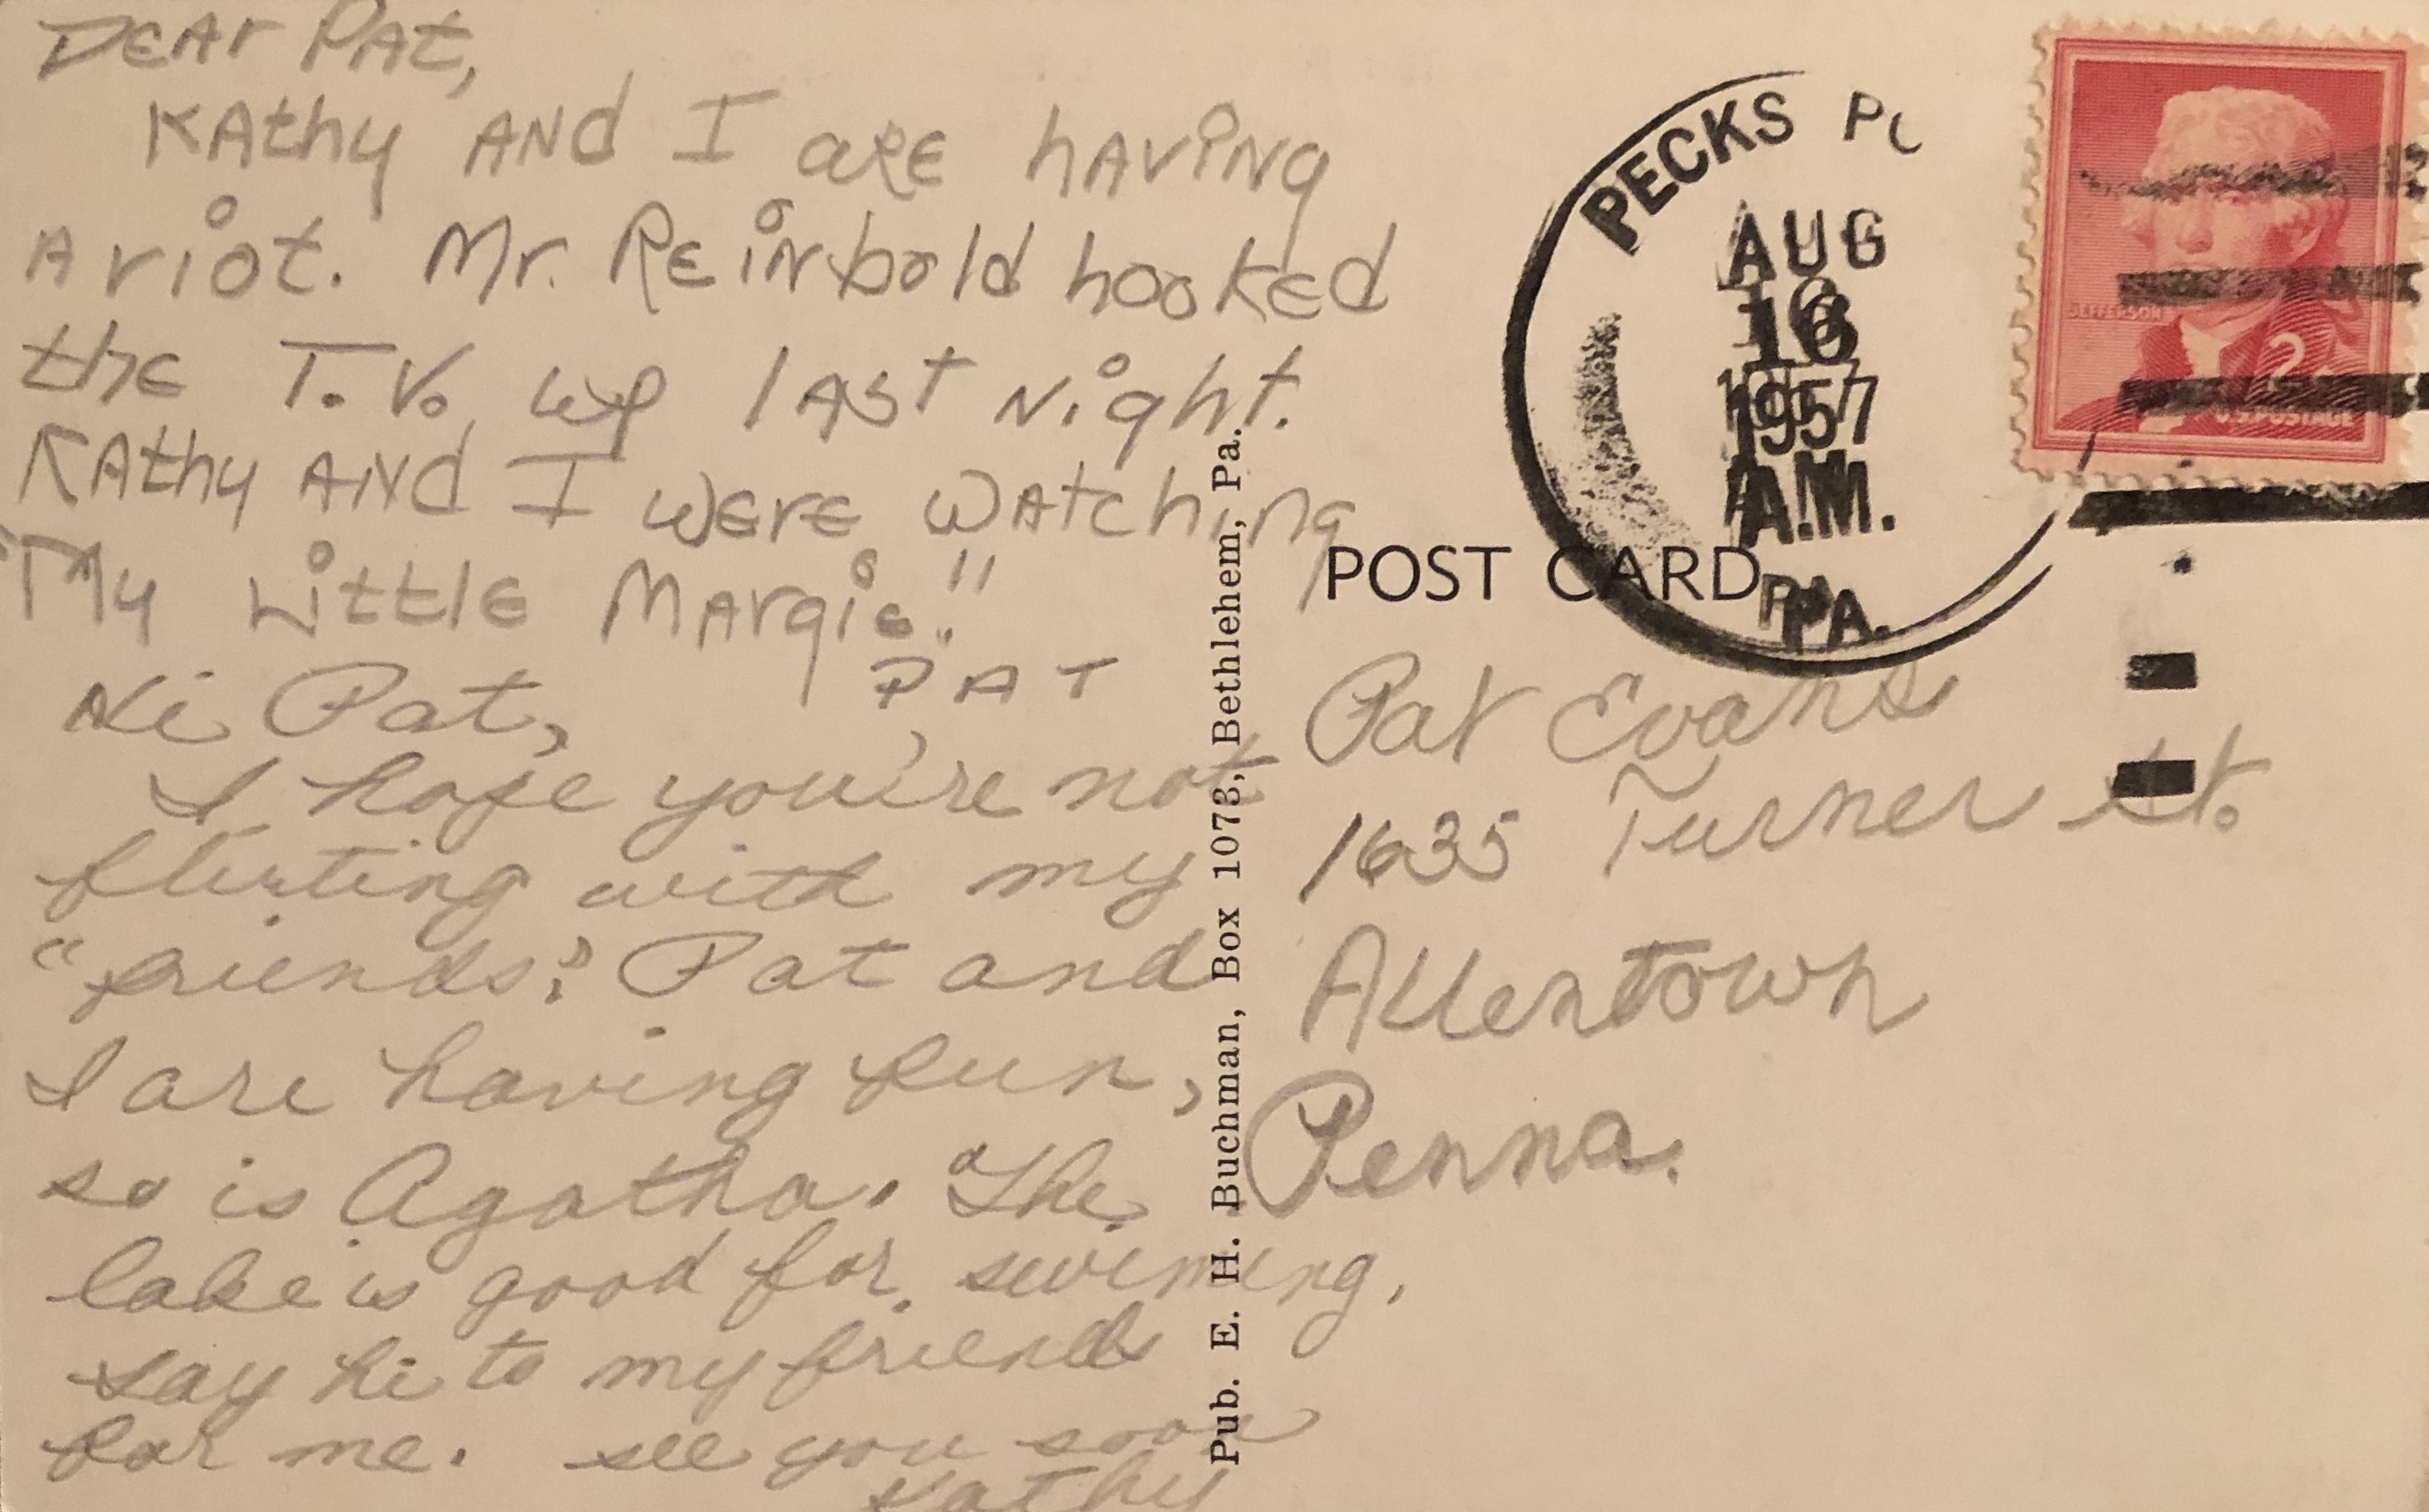 Dear Pat,
Kathy and I are having
a riot. Mr. Reinbold hooked
the T.V. up last night.
Kathy and I were watching
"My Little Margie."
PAT
Hi Pat,
I hope you're not
flirting with my
"friends." Pat and
I are having fun,
so is Agatha. The
lake is good for swiming,
say hi to my friend
for me. see you soon
Kathy
Pub. E. H. Buchman, Box 1073, Bethlehem, Pa.
POST CARD
PECKS
AUG
16
1957
A.M.
PA.
JEFFERSON
2¢
U.S. POSTAGE
Pat Evans
1635 Turner St.
Allentown
Penna.